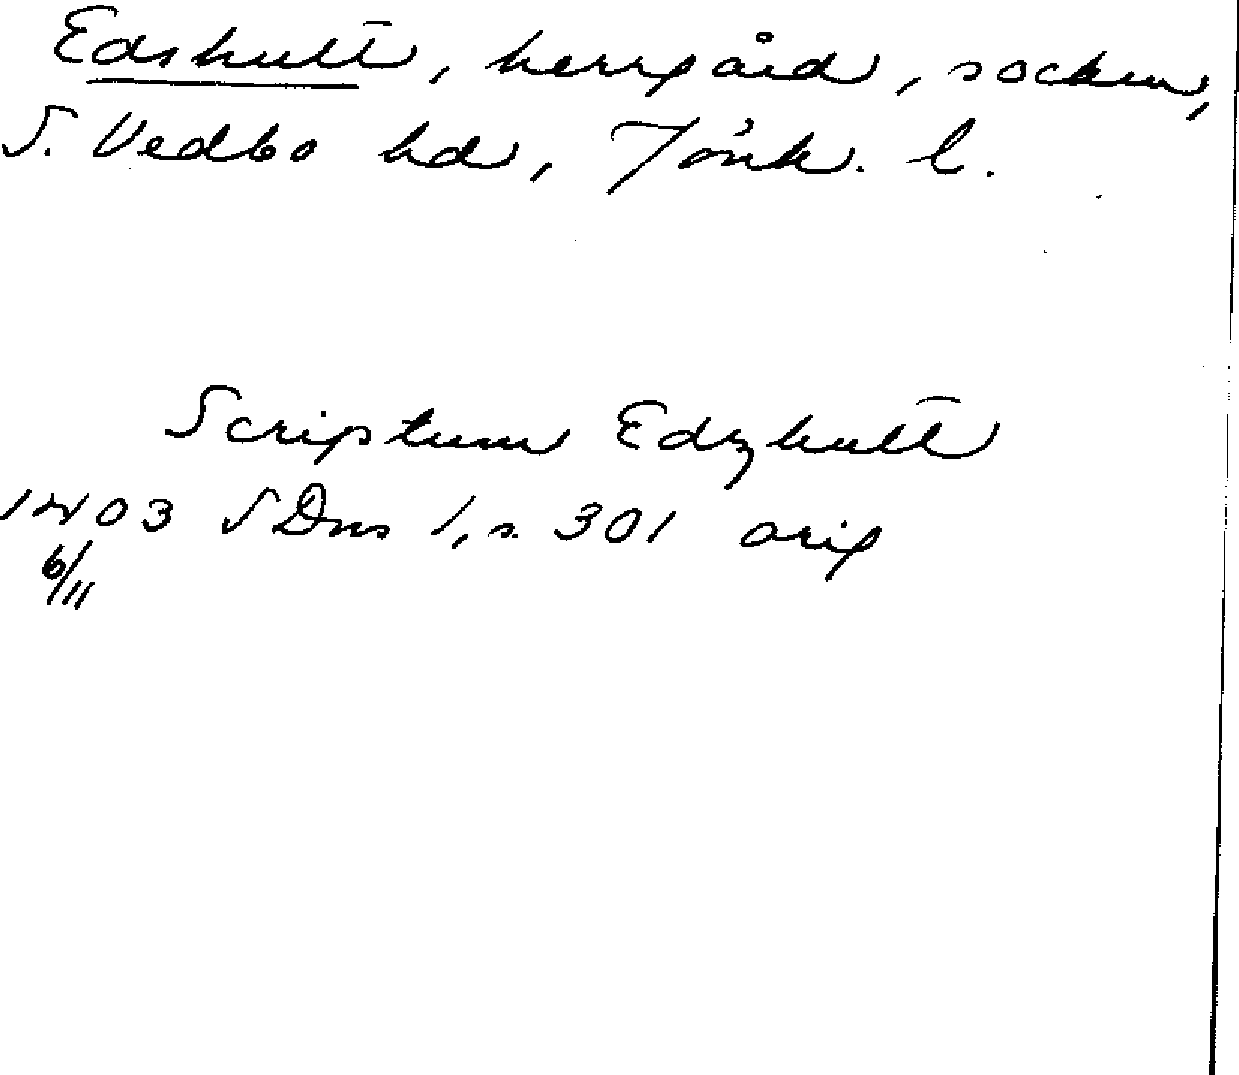 Edshult, herrgård, socken,
S. Vedbo hd, Jönk. l.
Scriptum Edzhult
1403 SDns 1, s. 301 orig
6/11